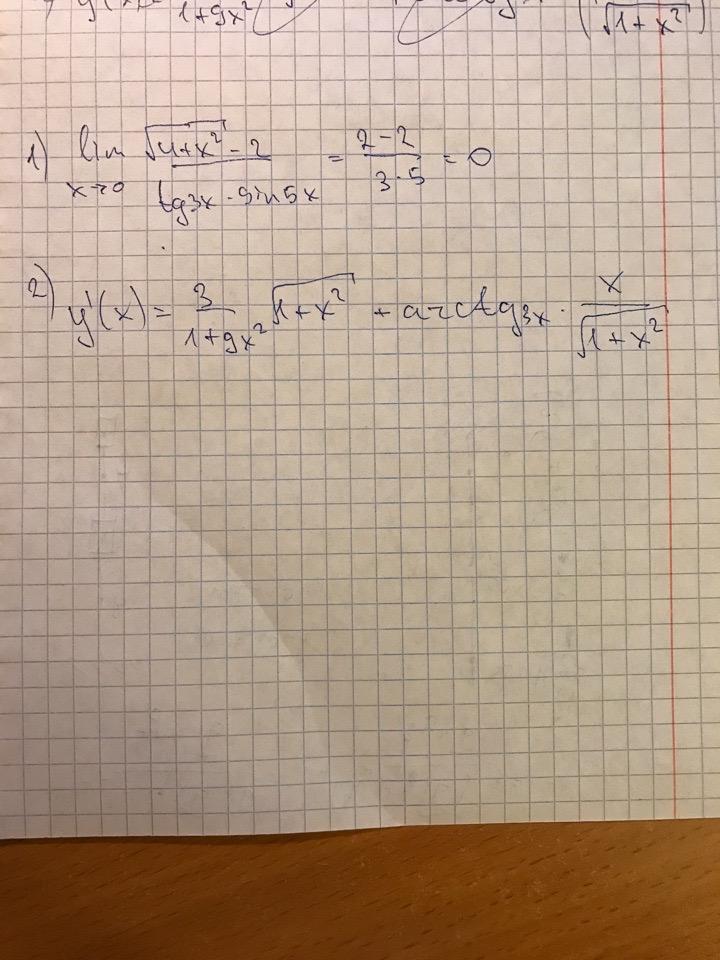 y'(x) = 1+9x² √1+x²
1) lim x→0 (√4+x² - 2)/(tg3x · sin5x) = (2-2)/(3·5) = 0
2) y'(x) = 3/(1+9x²) √1+x² + arctg3x · x/√1+x²